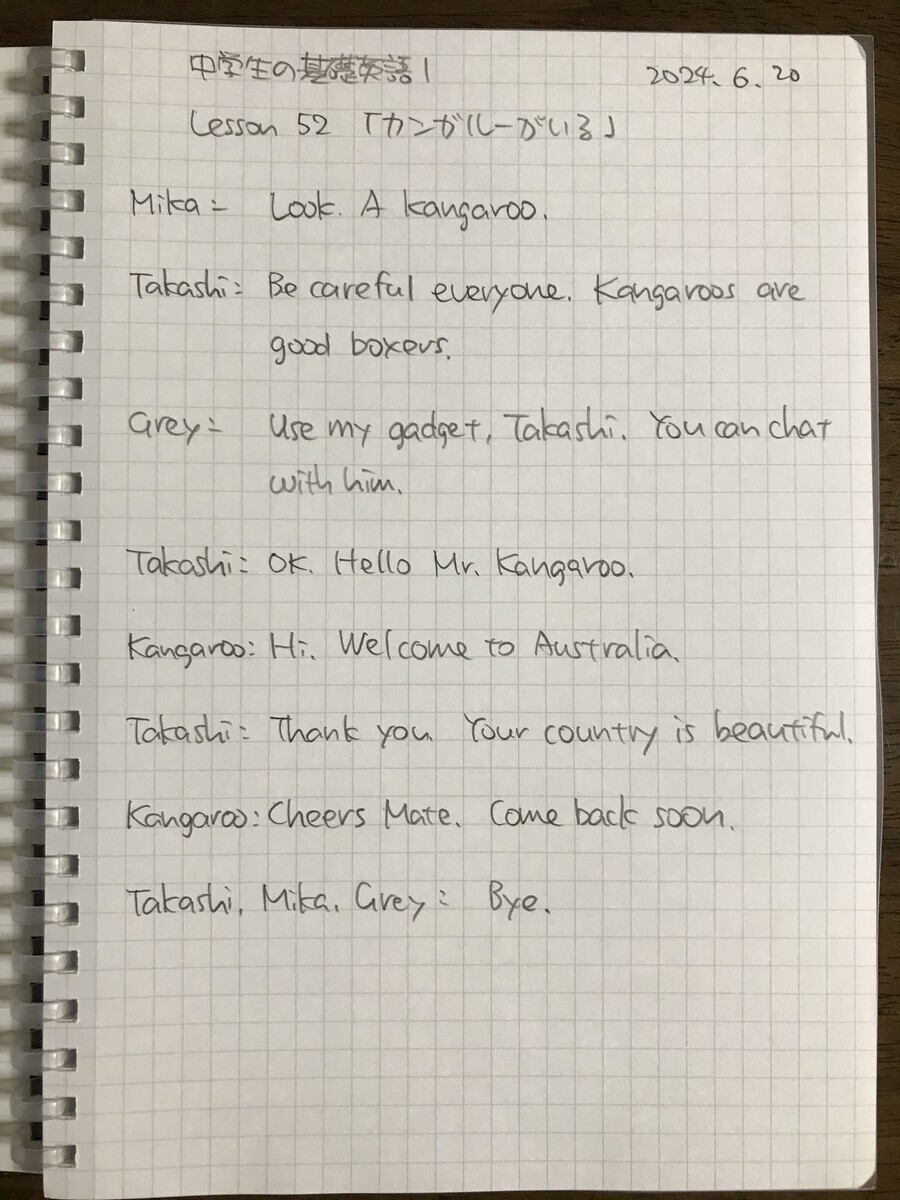 中学生の基礎英語1 2024.6.20
Lesson 52 「カンガルーがいる」
Mika: Look. A kangaroo.
Takashi: Be careful everyone. Kangaroos are
good boxers.
Grey: Use my gadget, Takashi. You can chat
with him.
Takashi: OK. Hello Mr. Kangaroo.
Kangaroo: Hi. Welcome to Australia.
Takashi: Thank you. Your country is beautiful.
Kangaroo: Cheers Mate. Come back soon.
Takashi, Mika, Grey: Bye.